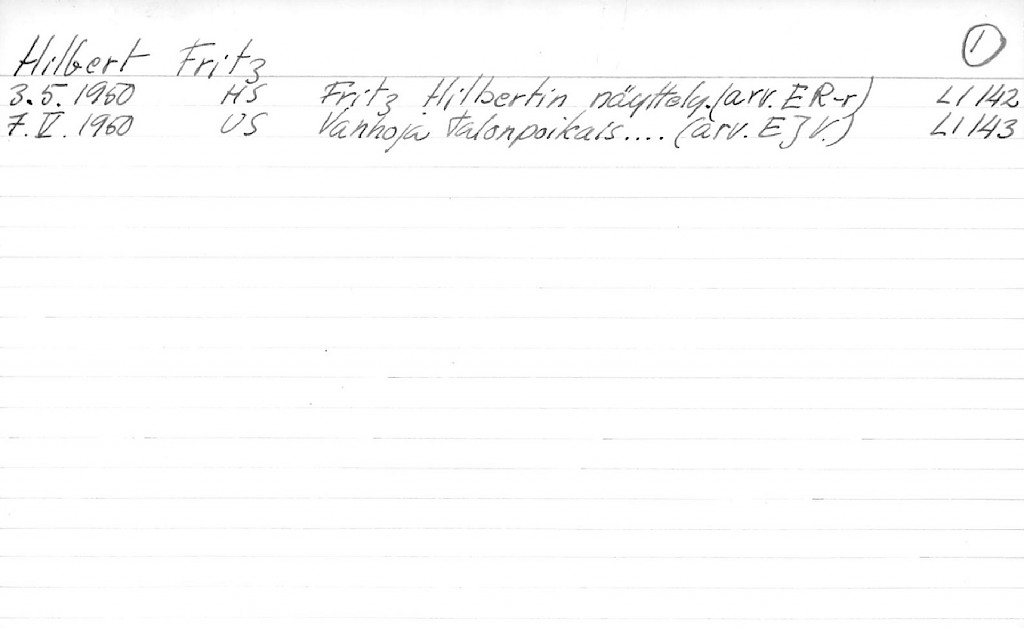 Hilbert Fritz 1
3.5.1950 HS Fritz Hilbertin näyttely. (arv. E R-r) LI 142
7.V.1950 US Vanhoja talonpoikais.... (arv. E J V.) LI 143